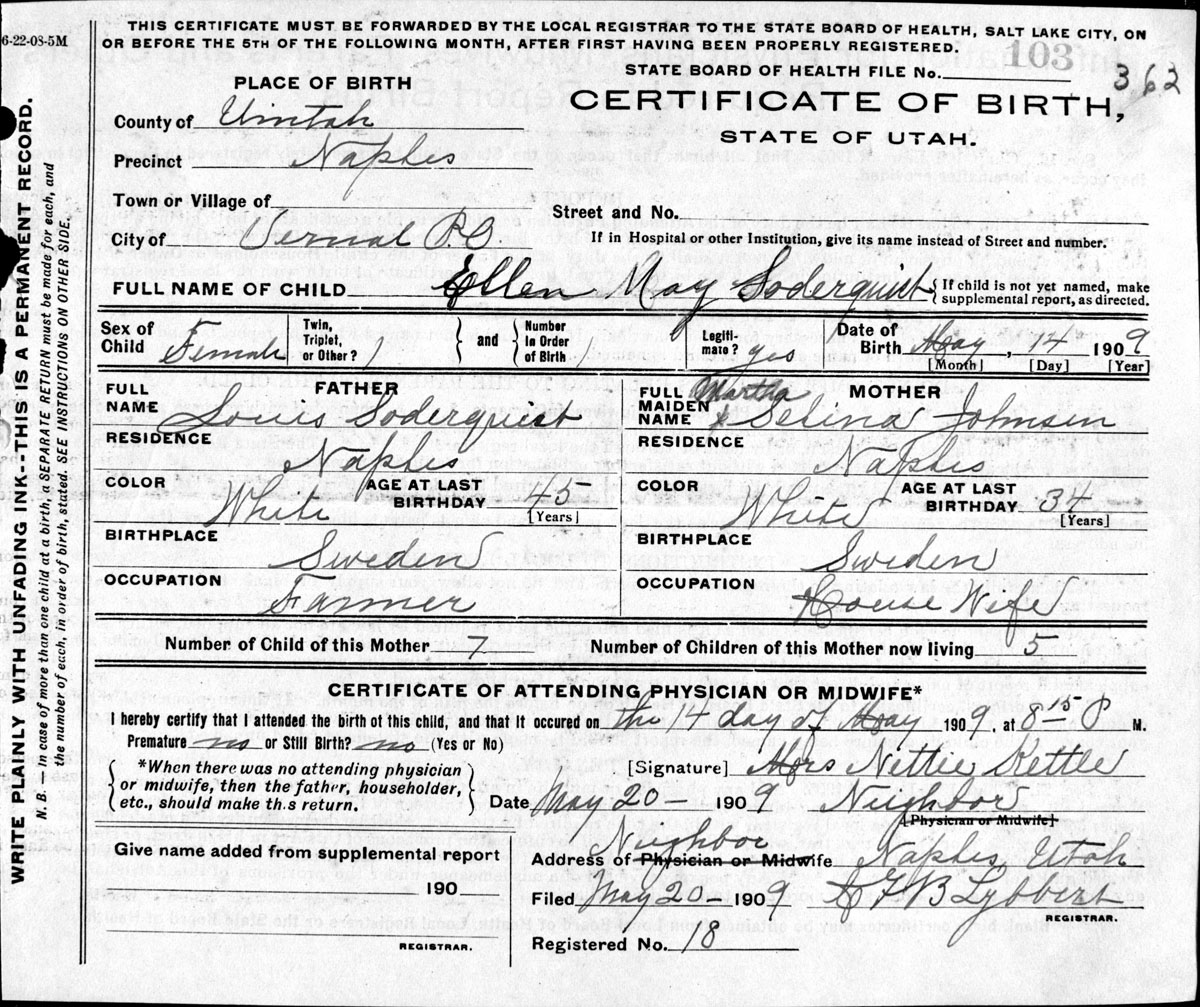 THIS CERTIFICATE MUST BE FORWARDED BY THE LOCAL REGISTRAR TO THE STATE BOARD OF HEALTH, SALT LAKE CITY, ON
OR BEFORE THE 5TH OF THE FOLLOWING MONTH, AFTER FIRST HAVING BEEN PROPERLY REGISTERED.
6-22-08-5M
STATE BOARD OF HEALTH FILE No. 103
362
PLACE OF BIRTH
CERTIFICATE OF BIRTH,
STATE OF UTAH.
County of Uintah
Precinct Naples
Town or Village of
Street and No.
City of Vernal P.O.
If in Hospital or other Institution, give its name instead of Street and number.
FULL NAME OF CHILD Ellen May Soderquist { If child is not yet named, make
supplemental report, as directed.
Sex of Child Female
Twin, Triplet, or Other? 1
} and {
Number In Order of Birth
Legiti-mate? yes
Date of Birth May, 14 1909
[Month] [Day] [Year]
FATHER
FULL NAME Louis Soderquist
MOTHER
FULL MAIDEN NAME Martha x Selina Johnsen
RESIDENCE Naples
RESIDENCE Naples
COLOR White AGE AT LAST BIRTHDAY 45 [Years]
COLOR White AGE AT LAST BIRTHDAY 34 [Years]
BIRTHPLACE Sweden
BIRTHPLACE Sweden
OCCUPATION Farmer
OCCUPATION House Wife
Number of Child of this Mother 7 Number of Children of this Mother now living 5
CERTIFICATE OF ATTENDING PHYSICIAN OR MIDWIFE*
I hereby certify that I attended the birth of this child, and that it occured on the 14 day of May 1909, at 8 15 P M.
Premature no or Still Birth? no (Yes or No)
{ *When there was no attending physician
or midwife, then the father, householder,
etc., should make th.s return. }
[Signature] Mrs Nettie Kettle
Date May 20 - 1909 Neighbor
[Physician or Midwife]
Neighbor
Address of Physician or Midwife Naples, Utah
Give name added from supplemental report
190
REGISTRAR.
Filed May 20 - 1909 Lybbert
REGISTRAR.
Registered No. 18
WRITE PLAINLY WITH UNFADING INK--THIS IS A PERMANENT RECORD.
N. B.— in case of more than one child at a birth, a SEPARATE RETURN must be made for each, and
the number of each, in order of birth, stated. SEE INSTRUCTIONS ON OTHER SIDE.